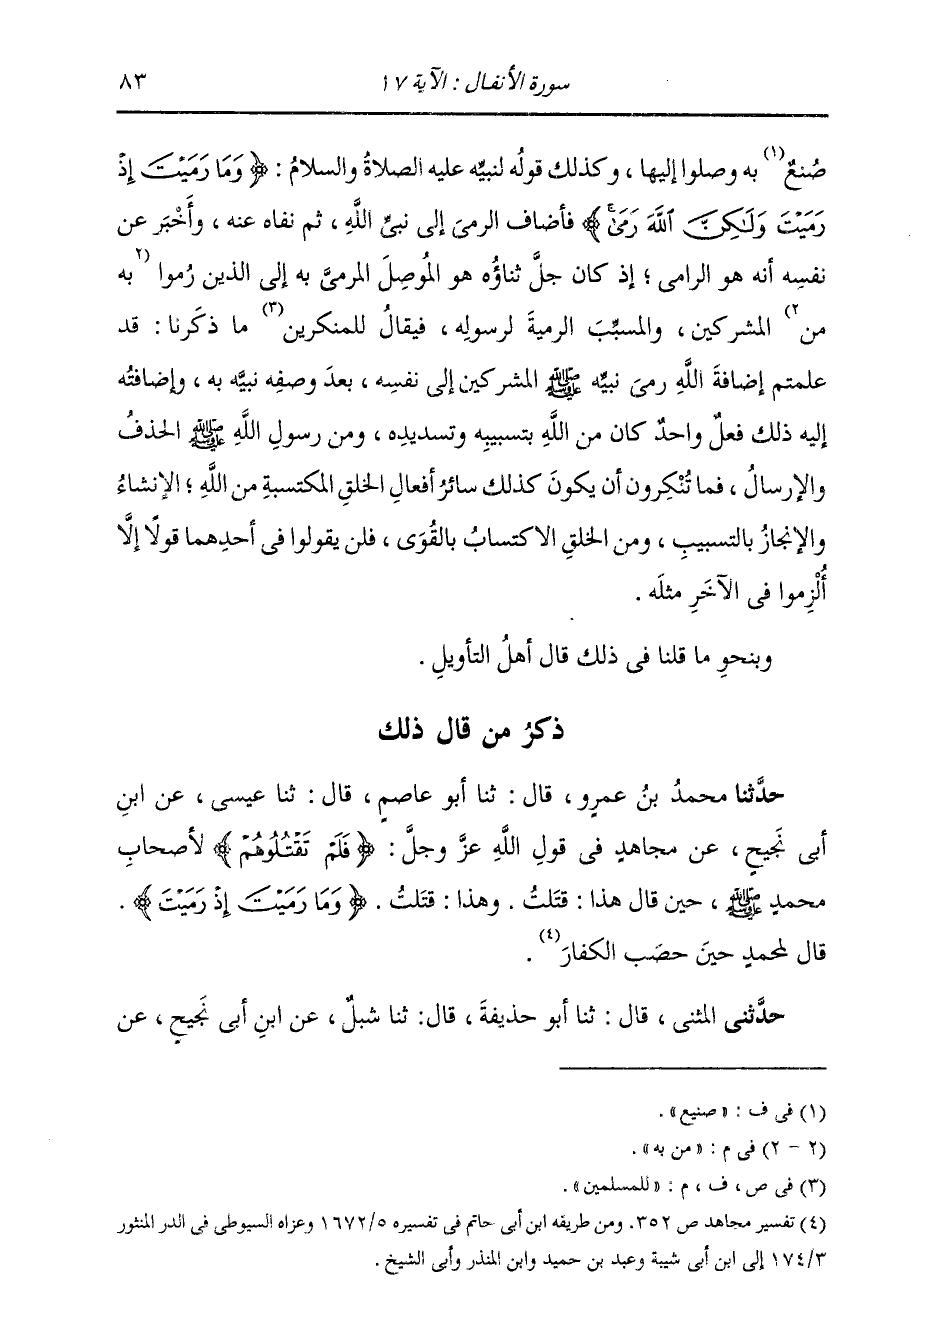 سورة الأنفال : الآية ١٧
٨٣
صُنعٌ(١) به وصلوا إليها ، وكذلك قولُه لنبيِّه عليه الصلاةُ والسلامُ : ﴿ وَمَا رَمَيْتَ إِذْ
رَمَيْتَ وَلَٰكِنَّ ٱللَّهَ رَمَىٰ ۚ ﴾ فأضاف الرمىَ إلى نبىِّ اللَّهِ ، ثم نفاه عنه ، وأَخْبَر عن
نفسِه أنه هو الرامى ؛ إذ كان جلَّ ثناؤُه هو المُوصِلَ المرمىَّ به إلى الذين رُموا (٢به
من٢) المشركين ، والمسبِّبَ الرميةَ لرسولِه ، فيقالُ للمنكرين(٣) ما ذكَرنا : قد
علمتم إضافةَ اللَّهِ رمىَ نبيِّه ﷺ المشركين إلى نفسِه ، بعدَ وصفِه نبيَّه به ، وإضافتُه
إليه ذلك فعلٌ واحدٌ كان من اللَّهِ بتسبيبِه وتسديدِه ، ومن رسولِ اللَّهِ ﷺ الحذفُ
والإرسالُ ، فما تُنْكِرون أن يكونَ كذلك سائرُ أفعالِ الخلقِ المكتسبةِ من اللَّهِ ؛ الإنشاءُ
والإنجازُ بالتسبيبِ ، ومن الخلقِ الاكتسابُ بالقُوَى ، فلن يقولوا فى أحدِهما قولًا إلَّا
أُلْزِموا فى الآخَرِ مثلَه .
وبنحوِ ما قلنا فى ذلك قال أهلُ التأويلِ .
ذكرُ من قال ذلك
حدَّثنا محمدُ بنُ عمرٍو ، قال : ثنا أبو عاصمٍ ، قال : ثنا عيسى ، عن ابنِ
أبى نَجيحٍ ، عن مجاهدٍ فى قولِ اللَّهِ عزَّ وجلَّ : ﴿ فَلَمْ تَقْتُلُوهُمْ ﴾ لأصحابِ
محمدٍ ﷺ ، حين قال هذا : قتَلتُ . وهذا : قتَلتُ . ﴿ وَمَا رَمَيْتَ إِذْ رَمَيْتَ ﴾ .
قال لمحمدٍ حينَ حصَب الكفارَ(٤) .
حدَّثنى المثنى ، قال : ثنا أبو حذيفةَ ، قال: ثنا شبلٌ ، عن ابنِ أبى نَجيحٍ ، عن
(١) فى ف : « صنيع » .
(٢ - ٢) فى م : « من به » .
(٣) فى ص ، ف ، م : « للمسلمين » .
(٤) تفسير مجاهد ص ٣٥٢. ومن طريقه ابن أبى حاتم فى تفسيره ١٦٧٢/٥ وعزاه السيوطى فى الدر المنثور
١٧٤/٣ إلى ابن أبى شيبة وعبد بن حميد وابن المنذر وأبى الشيخ .